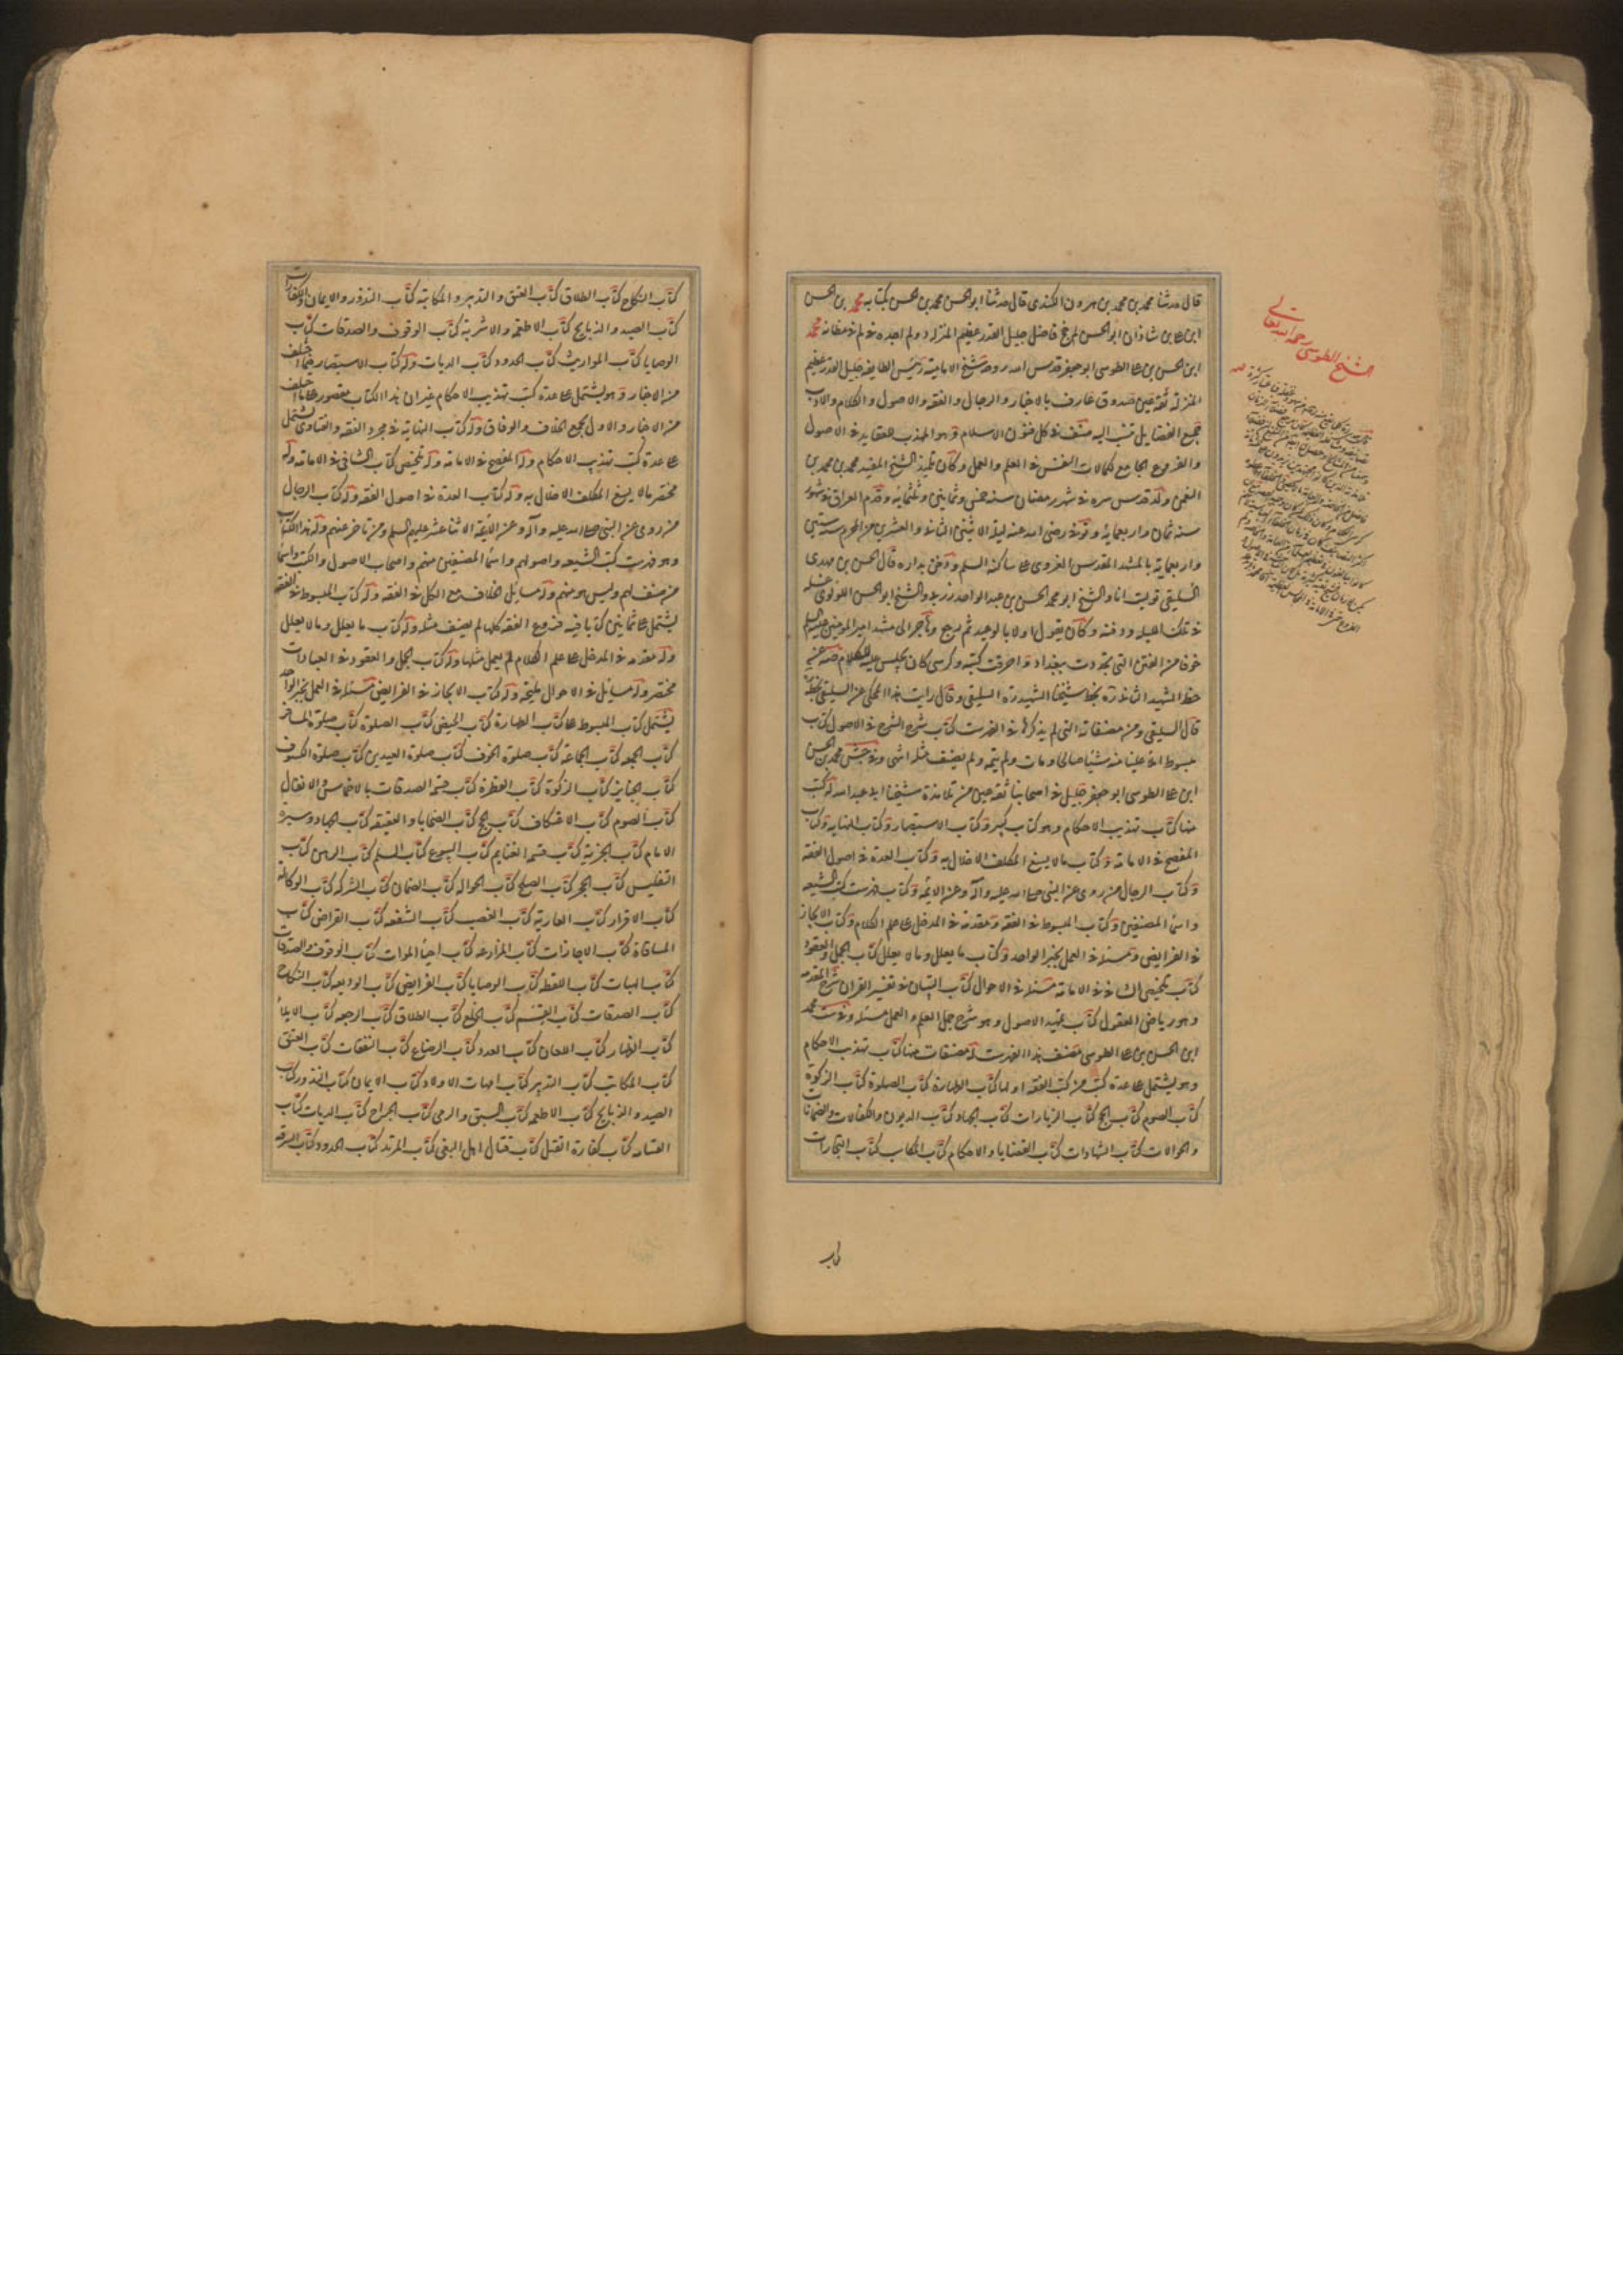 قال حدثنا محمد بن محمد بن هرون الكندى قال حدثنا ابو الحسن محمد بن الحسن بكتابه محمد بن الحسن
ابن على بن شاذان ابو الحسن لم يخ فاضل جليل القدر عظيم المنزلة ولم اجده فى لم فى مظانه محمد
ابن الحسن بن على الطوسى ابو جعفر قدس الله روحه شيخ الامامية رئيس الطايفه جليل القدر عظيم
المنزلة ثقة عين صدوق عارف بالاخبار والرجال والفقه والاصول والكلام والادب
جميع الفضايل تنسب اليه صنف فى كل فنون الاسلام وهو المهذب للعقايد فى الاصول
والفروع الجامع لكمالات النفس فى العلم والعمل وكان تلميذ الشيخ المفيد محمد بن محمد بن
النعمن ولد قدس سره فى شهر رمضان سنة خمس وثمانين وثلثمائة وقدم العراق فى شهور
سنة ثمان واربعمائة وتوفى رضى الله عنه ليلة الاثنين الثانى والعشرين من المحرم سنة ستين
واربعماية بالمشهد المقدس الغروى على ساكنه السلم ودفن بداره قال الحسن بن مهدى
السليقى توليت انا والشيخ ابو محمد الحسن بن عبد الواحد زربى والشيخ ابو الحسن اللولوى غسله
فى تلك الليلة ودفنه وكان يقول اولا بالوعيد ثم رجع وهاجر الى مشهد امير المومنين عليه السلم
خوفا من الفتن التى تجددت ببغداد واحرقت كتبه وكرسى كان يجلس عليه للكلام صه عن
خط الشهيد الثانى ره بخط شيخنا الشهيد ره السليقى وقال رايت هذا المحكى عن السليقى بخطه
قال السليقى ومن مصنفاته التى لم يذكرها فى الفهرست كتاب شرح الشرح فى الاصول كتاب
مبسوط املى علينا منه شيئا صالحا ومات ولم يتمه ولم يصنف مثله انتهى وفى جش محمد بن الحسن
ابن على الطوسى ابو جعفر جليل فى اصحابنا ثقة عين من تلامذة شيخنا ابى عبد الله له كتب
منها كتاب تهذيب الاحكام وهو كتاب كبير وكتاب الاستبصار وكتاب النهاية وكتاب
المفصح فى الامامة وكتاب ما لا يسع المكلف الاخلال به وكتاب العدة فى اصول الفقه
وكتاب الرجال من روى عن النبى صلى الله عليه وآله وعن الائمة وكتاب فهرست كتب الشيعه
واسماء المصنفين وكتاب المبسوط فى الفقه ومقدمة فى المدخل الى علم الكلام وكتاب الايجاز
فى الفرايض ومسئلة فى العمل بخبر الواحد وكتاب ما يعلل وما لا يعلل كتاب الجمل والعقود
كتاب تلخيص الشافى فى الامامة مسئلة فى الاحوال كتاب التبيان فى تفسير القران شرح المقدمه
وهو رياض العقول كتاب تمهيد الاصول وهو شرح جمل العلم والعمل مسئلة وفى ست محمد
ابن الحسن بن على الطوسى مصنف هذا الفهرست له مصنفات منها كتاب تهذيب الاحكام
وهو يشتمل على عدة كتب من كتب الفقه اولها كتاب الطهارة كتاب الصلوة كتاب الزكوة
كتاب الصوم كتاب الحج كتاب الزيارات كتاب الجهاد كتاب الديون والكفالات والضمانات
والحوالات كتاب الشهادات كتاب القضايا والاحكام كتاب المكاسب كتاب التجارات
الشيخ الطوسى رحمه الله تعالى
كتاب النكاح كتاب الطلاق كتاب العتق والتدبير والمكاتبة كتاب النذور والايمان والكفارات
كتاب الصيد والذبايح كتاب الاطعمة والاشربة كتاب الوقوف والصدقات كتاب
الوصايا كتاب المواريث كتاب الحدود كتاب الديات وله كتاب الاستبصار فيما اختلف
من الاخبار وهو يشتمل على عدة كتب تهذيب الاحكام غير ان هذا الكتاب مقصور على ما اختلف
من الاخبار والاول يجمع الخلاف والوفاق وله كتاب النهاية فى مجرد الفقه والفتاوى يشتمل
على عدة كتب تهذيب الاحكام وله المفصح فى الامامة وله تلخيص كتاب الشافى فى الامامة وله
مختصر ما لا يسع المكلف الاخلال به وله كتاب العدة فى اصول الفقه وله كتاب الرجال
من روى عن النبى صلى الله عليه وآله وعن الائمة الاثنا عشر عليهم السلم ومن تاخر عنهم وله هذا الكتاب
وهو فهرست كتب الشيعه واصولهم واسماء المصنفين منهم واصحاب الاصول والكتب واسماء
من صنف لهم وليس هو منهم وله مسايل الخلاف مع الكل فى الفقه وله كتاب المبسوط فى الفقه
يشتمل على ثمانين كتابا فيه فروع الفقه كلها لم يصنف مثله وله كتاب ما يعلل وما لا يعلل
وله مقدمة فى المدخل الى علم الكلام لم يعمل مثلها وله كتاب الجمل والعقود فى العبادات
مختصر وله مسايل فى الاحوال مليحة وله كتاب الايجاز فى الفرايض مسئلة فى العمل بخبر الواحد
يشتمل كتاب المبسوط على كتاب الطهارة كتاب الحيض كتاب الصلوة كتاب صلوة المسافر
كتاب الجمعه كتاب الجماعة كتاب صلوة الخوف كتاب صلوة العيدين كتاب صلوة الكسوف
كتاب الجنايز كتاب الزكوة كتاب الفطرة كتاب قسمة الصدقات بالاخماس والانفال
كتاب الصوم كتاب الاعتكاف كتاب الحج كتاب الضحايا والعقيقه كتاب الجهاد وسيرة
الامام كتاب الجزية كتاب قسمة الغنايم كتاب البيوع كتاب السلم كتاب الرهن كتاب
التفليس كتاب الحجر كتاب الصلح كتاب الحواله كتاب الضمان كتاب الشركه كتاب الوكالة
كتاب الاقرار كتاب العارية كتاب الغصب كتاب الشفعه كتاب القراض كتاب
المساقاة كتاب الاجارات كتاب المزارعه كتاب احياء الموات كتاب الوقوف والصدقات
كتاب الهبات كتاب اللقطه كتاب الوصايا كتاب الفرايض كتاب الوديعه كتاب النكاح
كتاب الصدقات كتاب القسم كتاب الخلع كتاب الطلاق كتاب الرجعه كتاب الايلاء
كتاب الظهار كتاب اللعان كتاب العدد كتاب الرضاع كتاب النفقات كتاب العتق
كتاب المكاتب كتاب التدبير كتاب امهات الاولاد كتاب الايمان كتاب النذور كتاب
الصيد والذبايح كتاب الاطعمه كتاب السبق والرمى كتاب الجراح كتاب الديات كتاب
القسامه كتاب كفارة القتل كتاب قتال اهل البغى كتاب المرتد كتاب الحدود كتاب السرقه